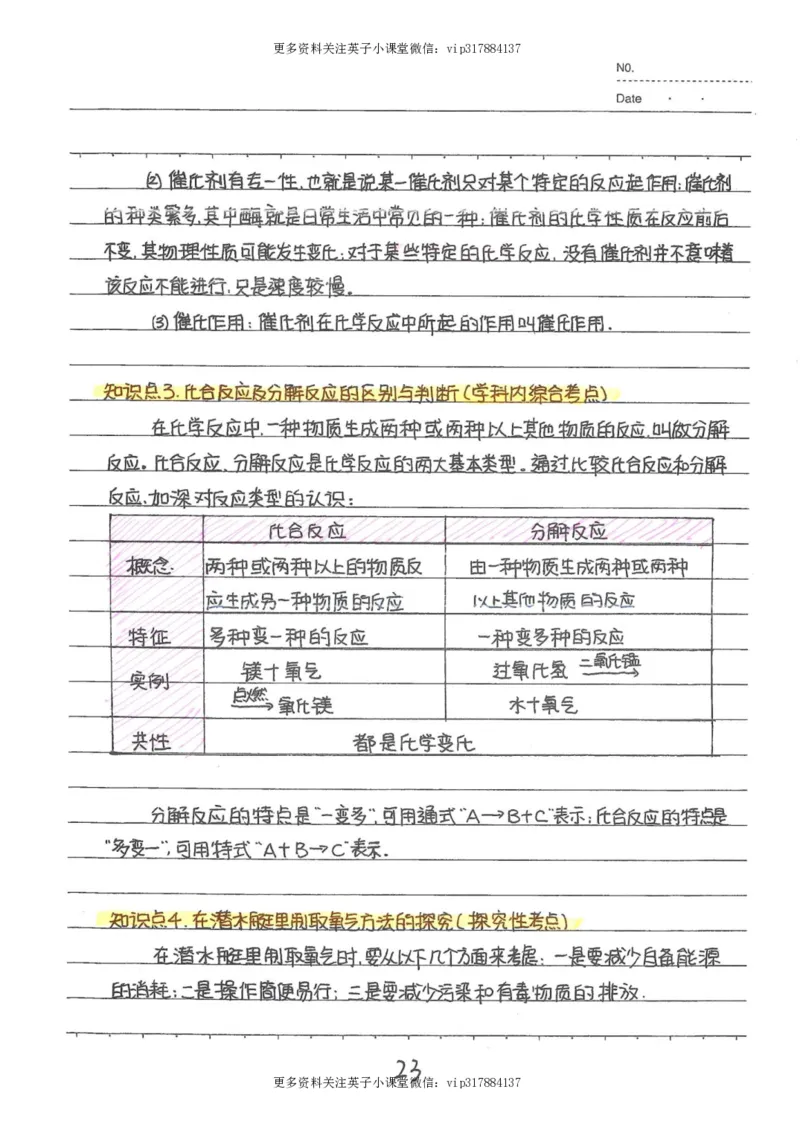 更多资料关注英子小课堂微信：vip317884137
NO.
Date · ·
(2) 催化剂有专一性,也就是说某一催化剂只对某个特定的反应起作用;催化剂
的种类繁多,其中酶就是日常生活中常见的一种;催化剂的化学性质在反应前后
不变,其物理性质可能发生变化;对于某些特定的化学反应,没有催化剂并不意味着
该反应不能进行,只是速度较慢。
(3) 催化作用:催化剂在化学反应中所起的作用叫催化作用.
知识点3.化合反应及分解反应的区别与判断(学科内综合考点)
在化学反应中,一种物质生成两种或两种以上其他物质的反应,叫做分解
反应。化合反应、分解反应是化学反应的两大基本类型。通过比较化合反应和分解
反应,加深对反应类型的认识:
化合反应 分解反应
概念 两种或两种以上的物质反 由一种物质生成两种或两种
应生成另一种物质的反应 以上其他物质的反应
特征 多种变一种的反应 一种变多种的反应
实例 镁+氧气 过氧化氢 二氧化锰→
点燃→ 氧化镁 水+氧气
共性 都是化学变化
分解反应的特点是"一变多",可用通式"A→B+C"表示;化合反应的特点是
"多变一",可用特式"A+B→C"表示.
知识点4.在潜水艇里制取氧气方法的探究(探究性考点)
在潜水艇里制取氧气时,要从以下几个方面来考虑:一是要减少自备能源
的消耗;二是操作简便易行;三是要减少污染和有毒物质的排放.
23
更多资料关注英子小课堂微信：vip317884137